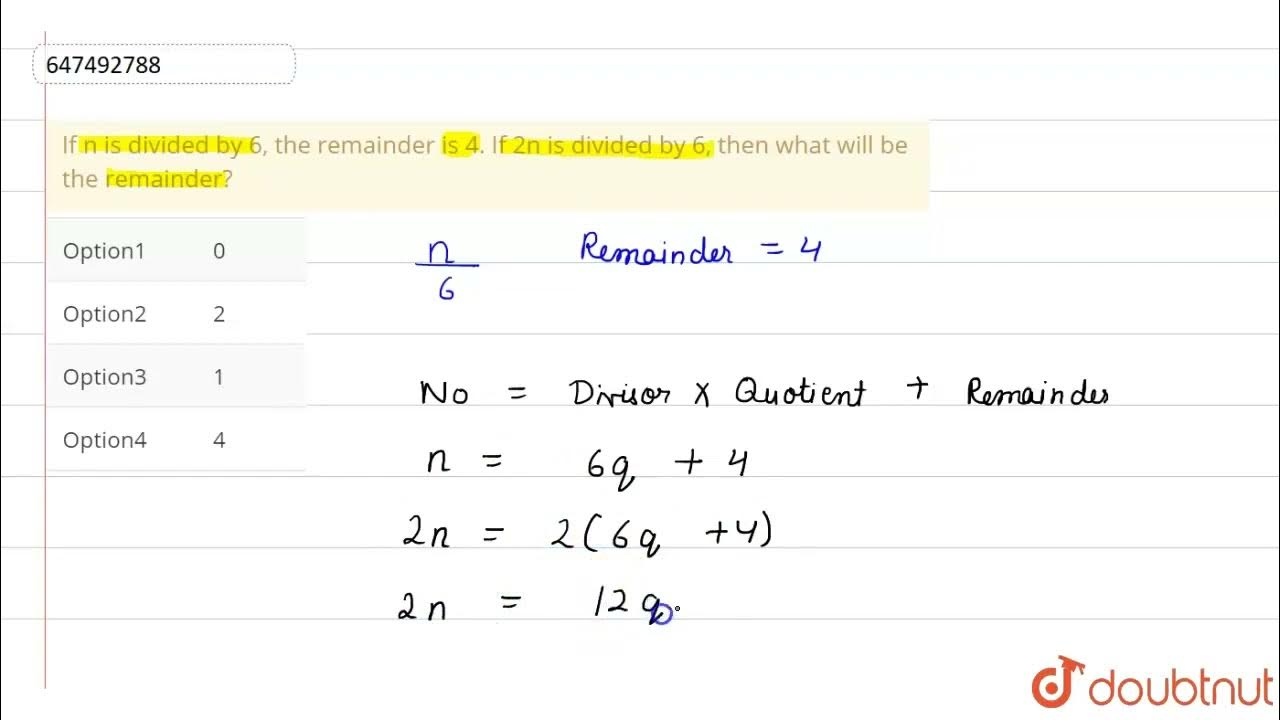 647492788
If n is divided by 6, the remainder is 4. If 2n is divided by 6, then what will be
the remainder?
Option1 0
Option2 2
Option3 1
Option4 4
n/6 Remainder = 4
No = Divisor X Quotient + Remainder
n = 6q + 4
2n = 2(6q +4)
2n = 12q
doubtnut